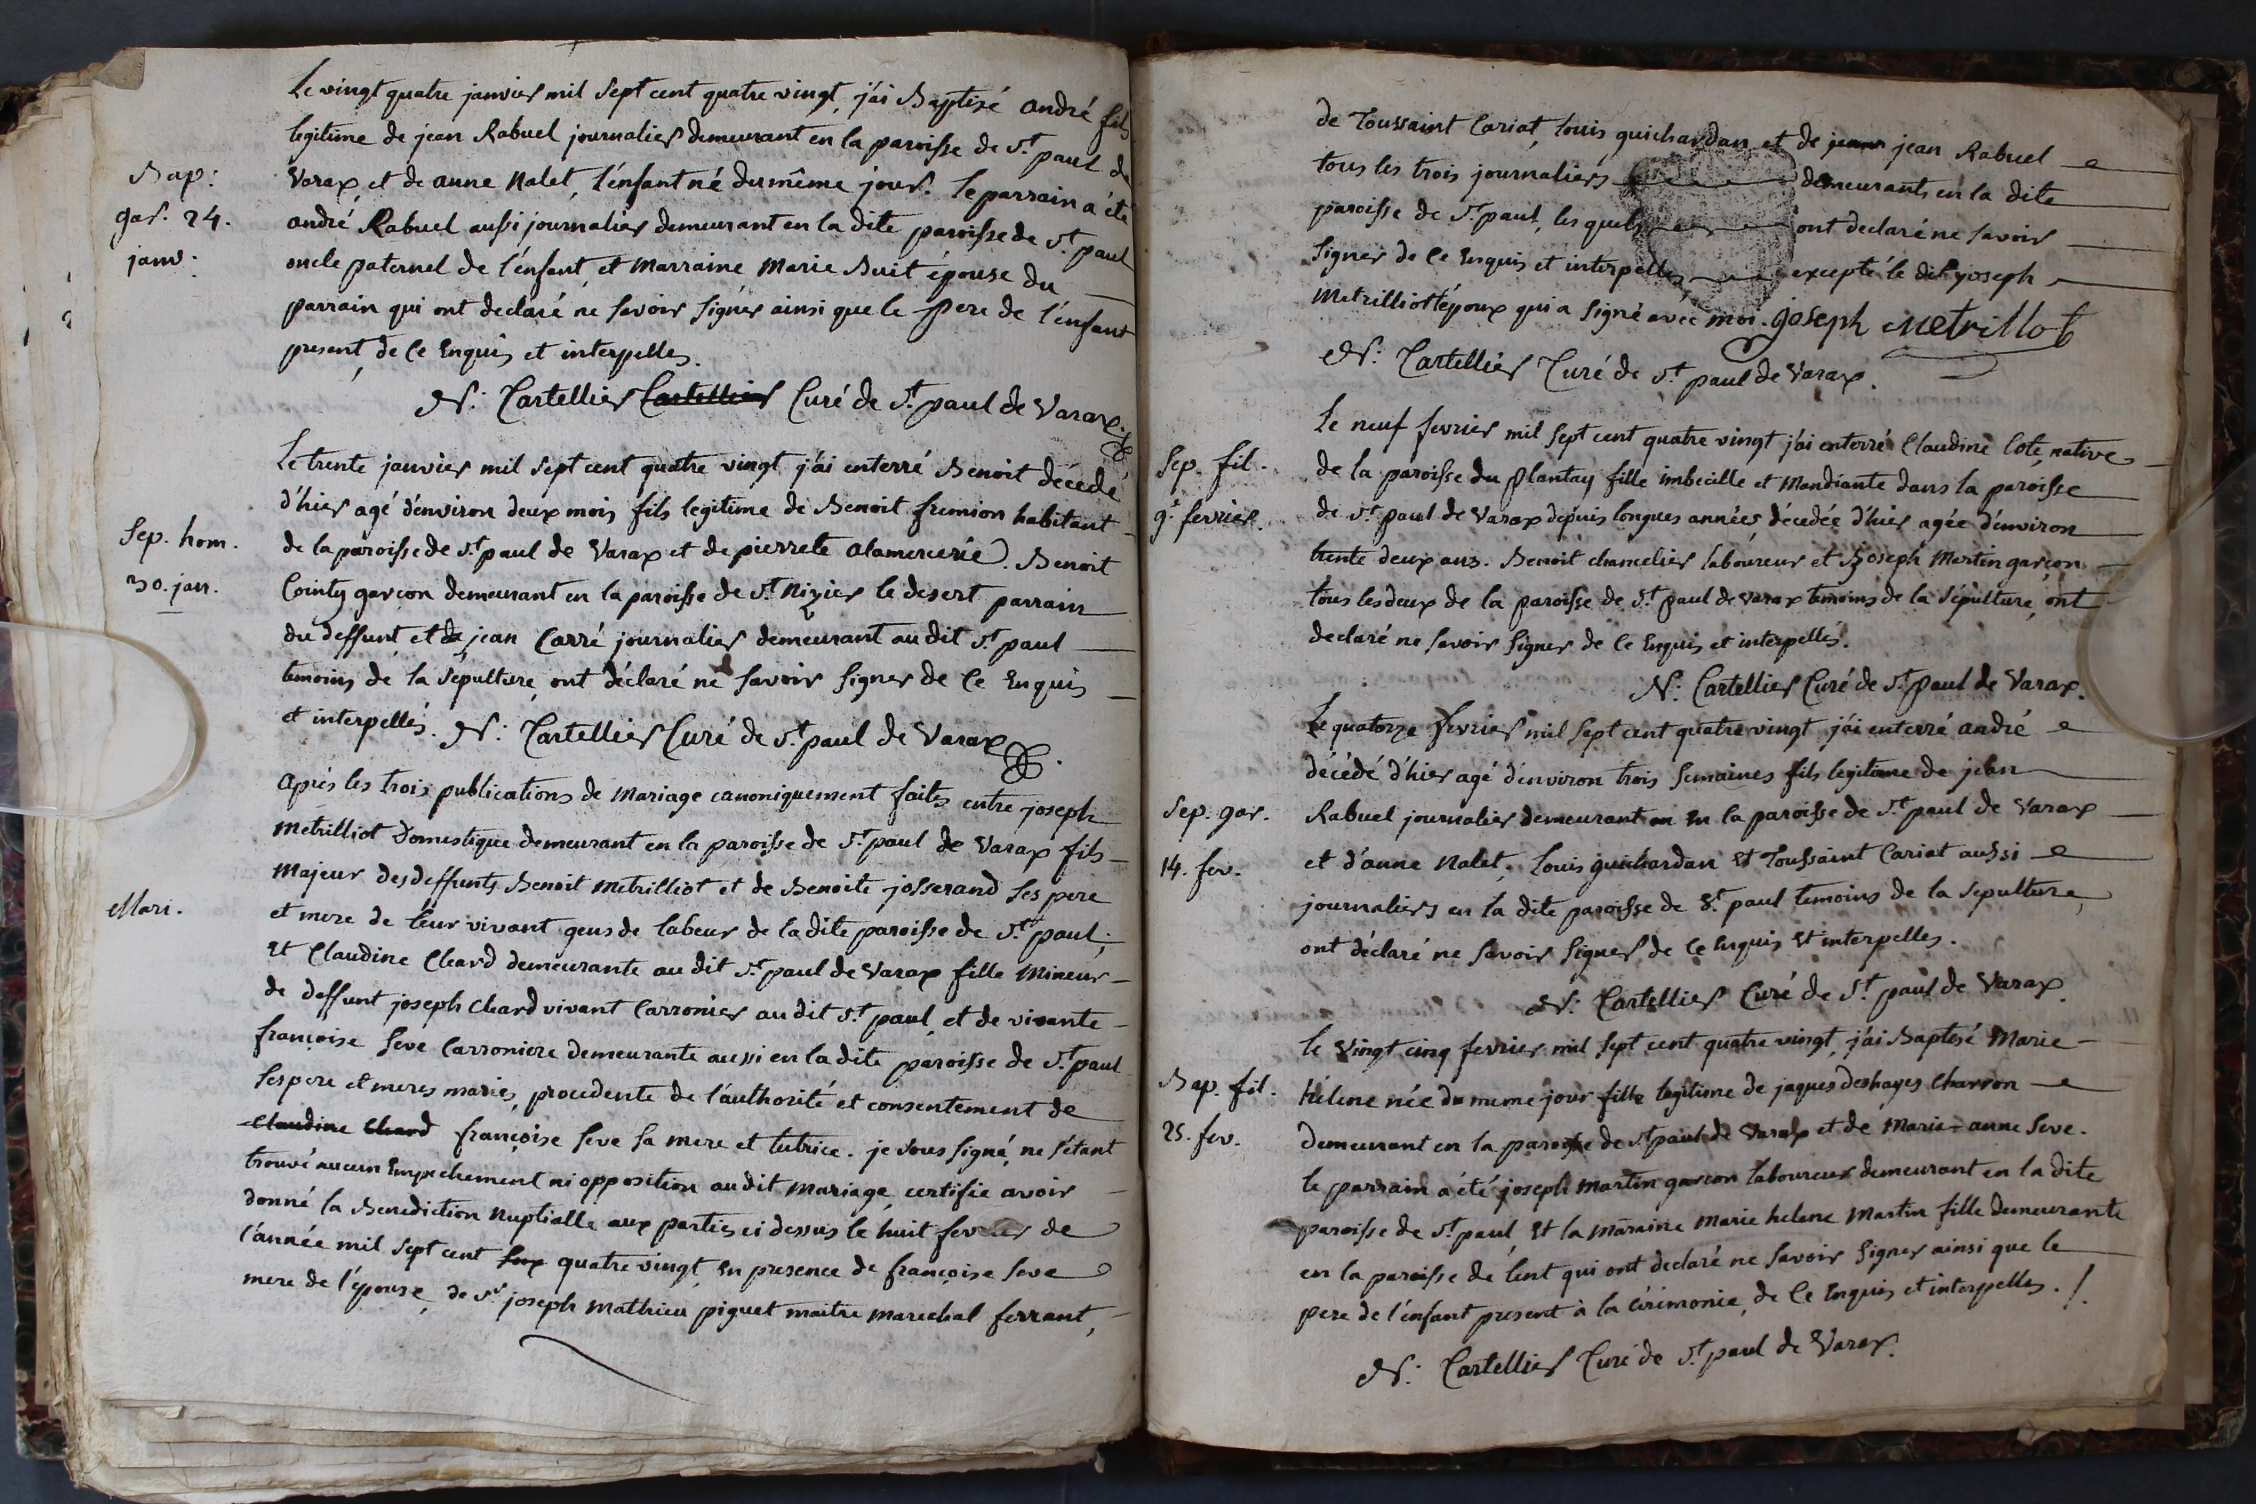 Le vingt quatre janvier mil sept cent quatre vingt j'ai Baptisé andré fils
legitime de jean Rabuel journalier demeurant en la paroisse de St paul de
Varax et de anne Nalet, l'enfant né du même jour. le parrain a été
andré Rabuel aussi journalier demeurant en la dite paroisse de St paul
oncle paternel de l'enfant et Marraine Marie Buit épouse du
parrain qui ont declaré ne savoir signer ainsi que le pere de l'enfant
present, de ce Enquis et interpelles.
Bap:
gar. 24.
janv.
N: Cartellier Cartellier Curé de St paul de Varax.
Le trente janvier mil sept cent quatre vingt j'ai enterré Benoit décédé
d'hier agé d'environ deux mois fils legitime de Benoit frimion habitant
de la paroisse de St paul de Varax et de pierrete alamercerie. Benoit
Cointy garcon demeurant en la paroisse de St Nizier le desert parrain
du deffunt et de jean Carré journalier demeurant au dit St paul
temoins de la sépulture, ont déclaré ne savoir signer de ce Enquis
et interpellés. N: Cartellier Curé de St paul de Varax.
Sep. hom.
30. jan.
Après les trois publications de Mariage canoniquement faites entre joseph
Metrilliot Domestique demeurant en la paroisse de St paul de Varax fils
Majeur des deffunts Benoit Metrilliot et de Benoite josserand ses pere
et mere de leur vivant gens de labeur de la dite paroisse de St paul;
Et Claudine Chard demeurante au dit St paul de Varax fille Mineur
de deffunt joseph Chard vivant Carronier au dit St paul, et de vivante
françoise seve Carroniere demeurante aussi en la dite paroisse de St paul
ses pere et meres mariés, procedente de l'authorité et consentement de
Claudine Chard françoise seve sa mere et tutrice. je sous signé, ne s'étant
trouvé aucun Empechement ni opposition au dit Mariage certifie avoir
donné la Benediction Nuptialle aux parties ci dessus le huit fevrier de
l'année mil sept cent quatre vingt, En presence de françoise seve
mere de l'épouse, de Sr joseph Mathieu piguet maitre marechal ferrant,
Mari.
de Toussaint Cariat, Louis guichardan et de jean Rabuel
tous les trois journaliers demeurants en la dite
paroisse de St paul, les quels ont declaré ne savoir
signer de ce Enquis et interpelles excepté le dit joseph
Metrilliot époux qui a signé avec moi. joseph metrillot
N: Cartellier Curé de St paul de Varax.
Le neuf fevrier mil sept cent quatre vingt j'ai enterré Claudine Cote, native
de la paroisse du plantay fille imbecille et Mandiante dans la paroisse
de St paul de Varax depuis longues années décedée d'hier agée d'environ
trente deux ans. Benoit chancelier laboureur et joseph Martin garçon
tous les deux de la paroisse de St paul de varax temoins de la sépulture, ont
declaré ne savoir signer de ce Enquis et interpellés.
Sep. fil.
9. fevrier.
N: Cartellier Curé de St paul de Varax.
Le quatorze fevrier mil sept cent quatre vingt j'ai enterré andré
décédé d'hier agé d'environ trois semaines fils legitime de jean
Rabuel journalier demeurant en la paroisse de St paul de Varax
et d'anne Nalet. Louis guichardan Et Toussaint Cariat aussi
journaliers en la dite paroisse de St paul temoins de la sepulture,
ont déclaré ne savoir signer de ce Enquis Et interpelles.
Sep. gar.
14. fev.
N: Cartellier Curé de St paul de Varax.
Le Vingt cinq fevrier mil sept cent quatre vingt j'ai Baptisé Marie
hélene née du meme jour fille legitime de jaques deshayes Charron
demeurant en la paroisse de St paul de Varax et de Marie-anne Seve.
le parrain a été joseph Martin garcon laboureur demeurant en la dite
paroisse de St paul, Et la maraine Marie helene Martin fille demeurante
en la paroisse de lent qui ont declaré ne savoir signer ainsi que le
pere de l'enfant present à la cérimonie, de ce Enquis et interpelles.
Bap. fil.
25. fev.
N: Cartellier Curé de St paul de Varax.